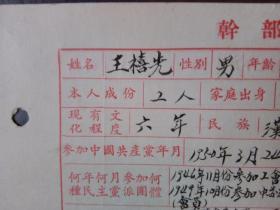 幹部
姓名 王禧先 性别 男 年齡
本人成份 工人 家庭出身
現有文化程度 六年 民族 漢
參加中國共產黨年月 1950年3月24
何年何月參加何種民主黨派團體 1946年11月參加工會
1949年10月參加中